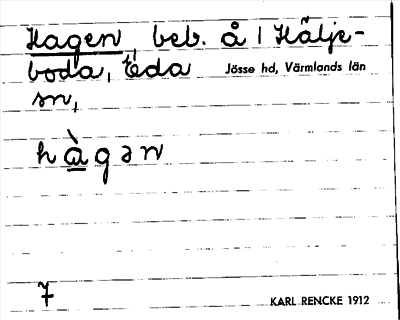 Hagen, beb. å / Hälje-
boda, Eda Jösse hd, Värmlands län
sn,
hàgən
7
KARL RENCKE 1912